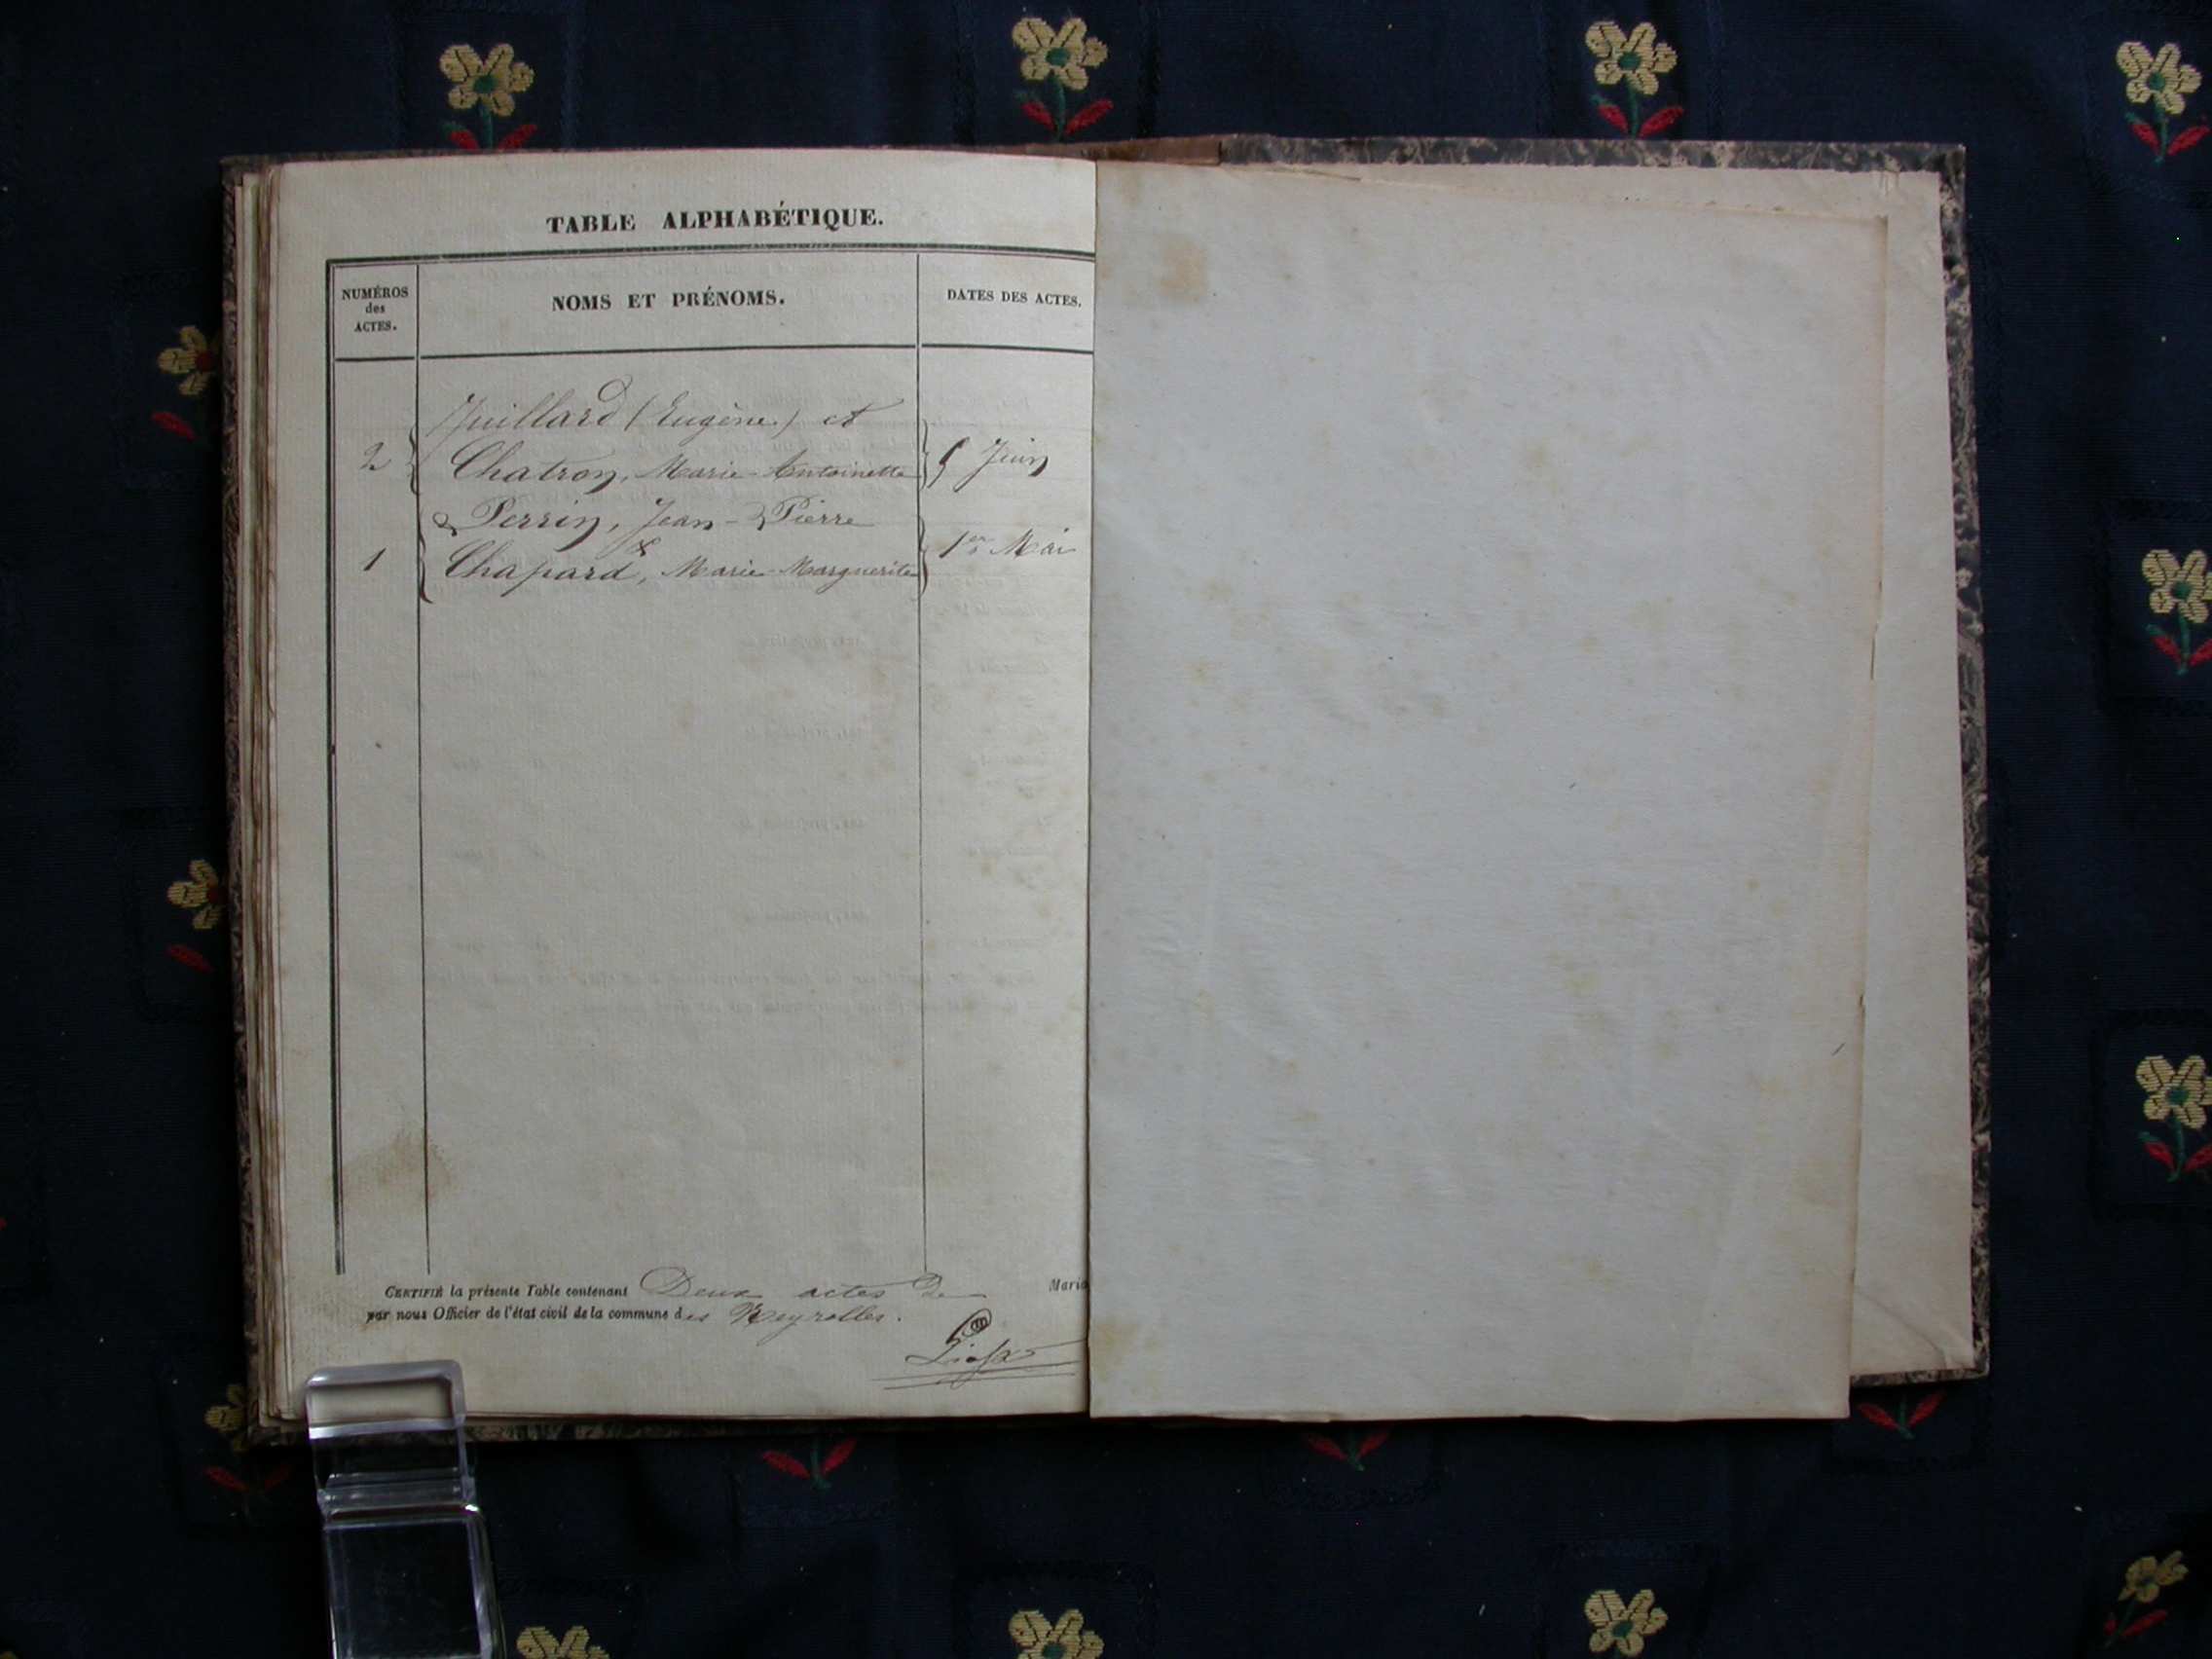 TABLE ALPHABÉTIQUE.
NUMÉROS
des
ACTES.
NOMS ET PRÉNOMS.
DATES DES ACTES.
Juillard (Eugène) et
2 Chatron, Marie-Antoinette 5 Juin
Perrin, Jean-Pierre
&
1 Chapard, Marie-Marguerite 1er Mai
CERTIFIÉ la présente Table contenant Deux actes De Maria
par nous Officier de l'état civil de la commune des Neyrolles.